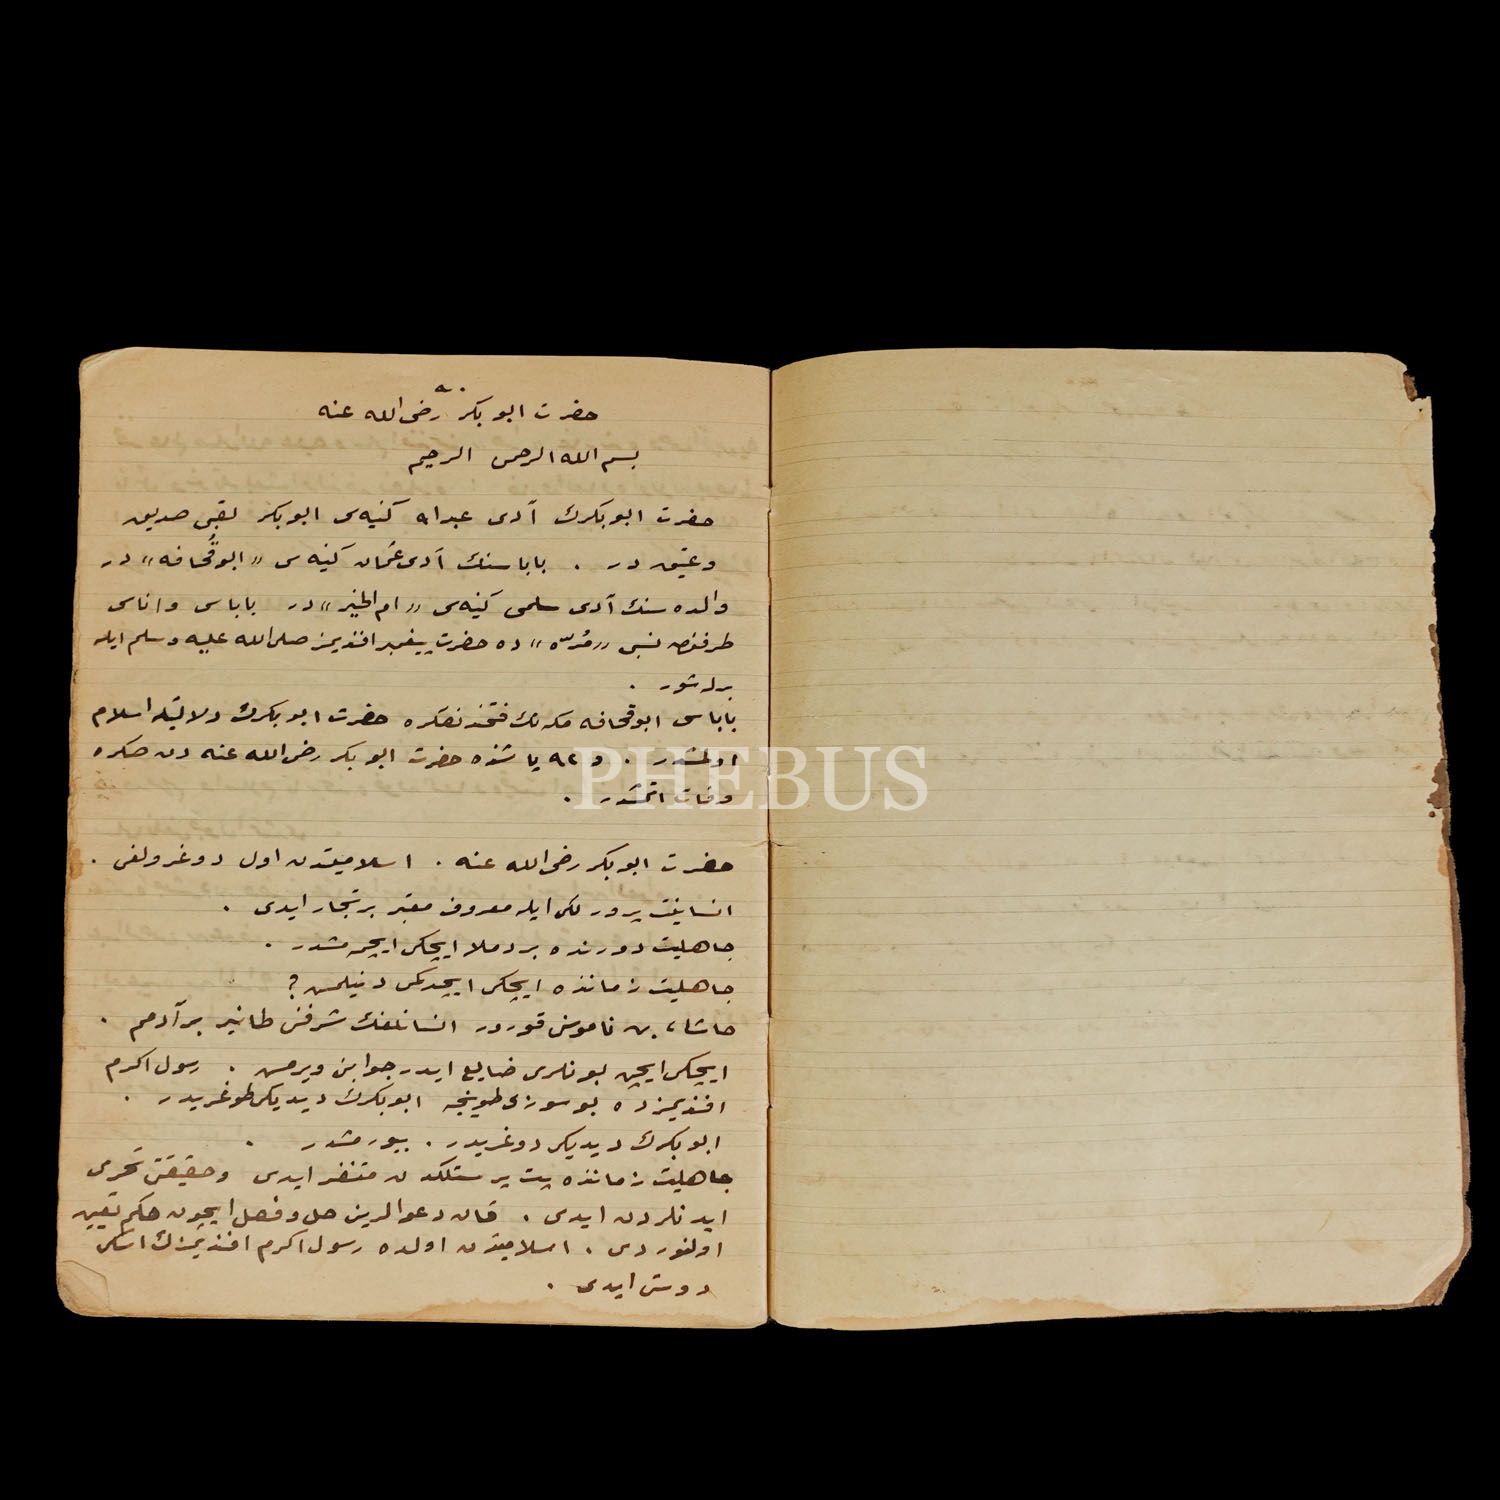 حضرت ابو بكر رضى الله عنه
بسم الله الرحمن الرحيم
حضرت ابو بكرك آدى عبدالله كنيه‌سى ابو بكر لقبى صديق
وعتيق در . باباسنك آدى عثمان كنيه‌سى «ابو قُحافه» در
والده سنك آدى سلمى كنيه‌سى «ام الخير» در باباسى و اناسى
طرفندن نسبى «مُرّه» ده حضرت پيغمبر افنديمز صلى الله عليه وسلم ايله
برلشور .
باباسى ابو قحافه مكه نك فتحندنصكره حضرت ابو بكرك دلالتيله اسلام
اولمشدر . و ٩٢ ياشنده حضرت ابو بكر رضى الله عنه دن صكره
وفات اتمشدر .
حضرت ابو بكر رضى الله عنه . اسلاميتدن اول دوغرولغى .
انسانيت پرور لكى ايله معروف معتبر بر تجار ايدى .
جاهليت دورنده بر دملا ايچكى ايچمه مشدر .
جاهليت زماننده ايچكى ايچدكمى دنيلمس ؟
حاشا ، بن ناموسنى قورور انسانلغك شرفنى طانير بر آدمم .
ايچكى ايچن بونلرى ضايع ايدر جوابنى ويرمس . رسول اكرم
افنديمز ده بو سوزى طوينجه ابو بكرك ديديكى طوغريدر .
ابو بكرك ديديكى دوغريدر . بيورمشدر .
جاهليت زماننده پت پرستلكدن متنفر ايدى وحقيقتى تحرى
ايدنلردن ايدى . قان دعوالرينى حل و فصل ايچون حكم تعيين
اولنوردى . اسلاميتدن اولده رسول اكرم افنديمزك اسكى
دوستى ايدى .
PHEBUS